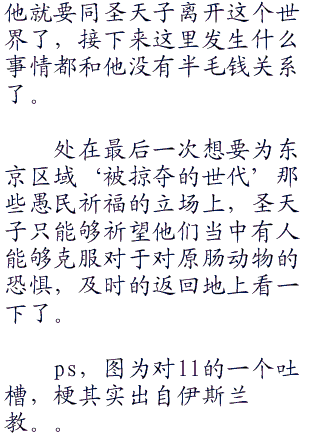 他就要同圣天子离开这个世
界了，接下来这里发生什么
事情都和他没有半毛钱关系
了。
处在最后一次想要为东
京区域‘被掠夺的世代’那
些愚民祈福的立场上，圣天
子只能够祈望他们当中有人
能够克服对于对原肠动物的
恐惧，及时的返回地上看一
下了。
ps，图为对11的一个吐
槽，梗其实出自伊斯兰
教。。